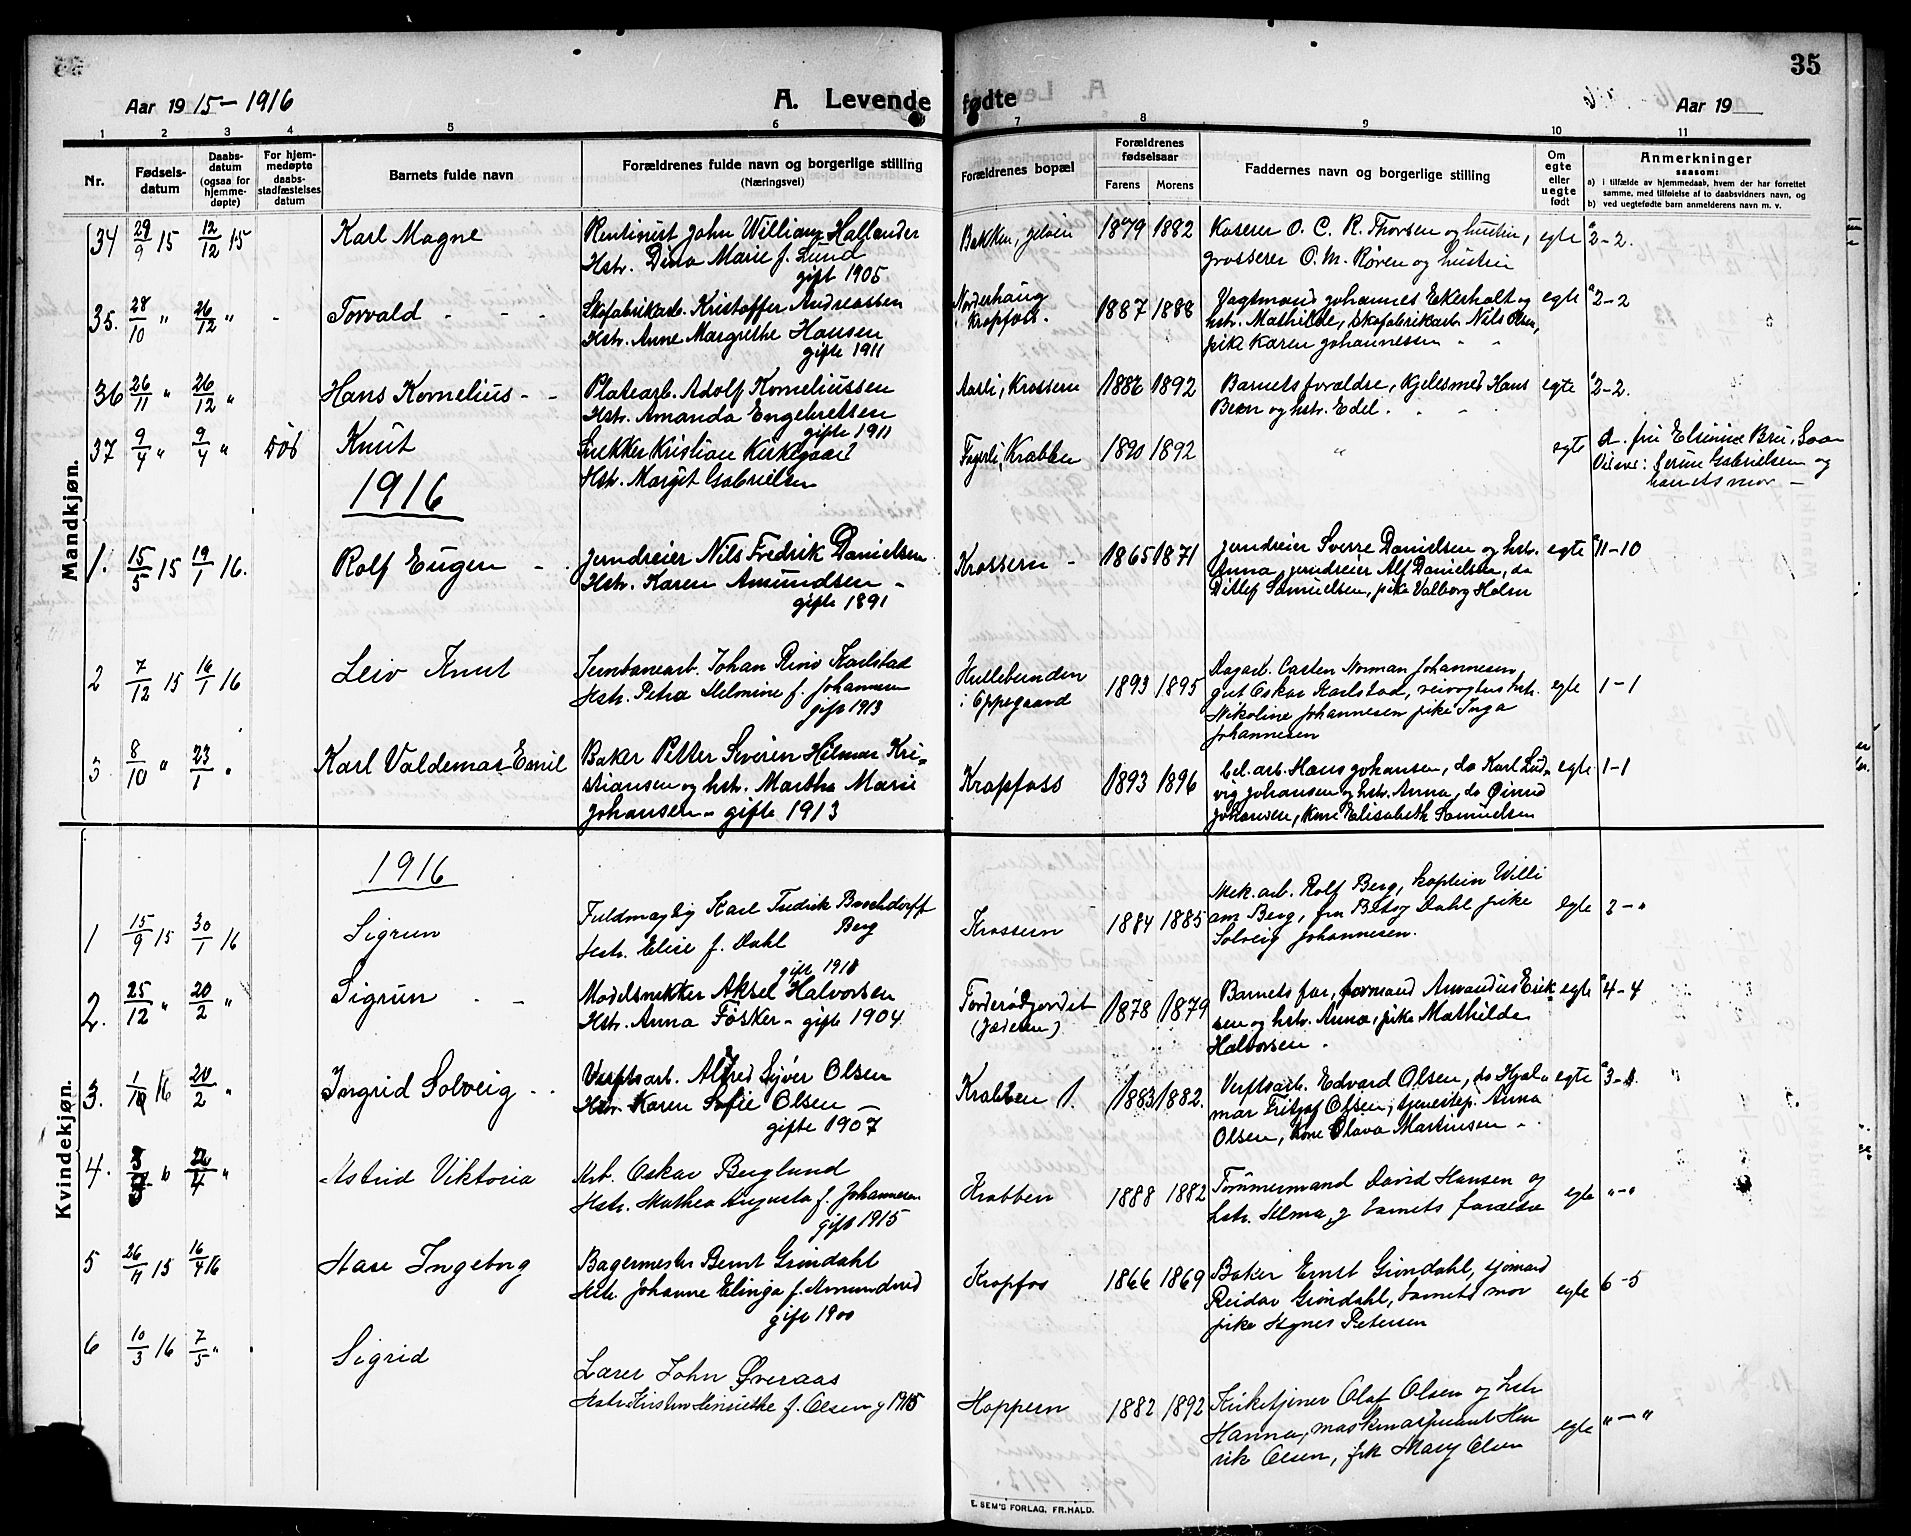 35
Aar 19 15-1916
A. Levende fødte
Aar 19
1 2 3 4 5 6 7 8 9 10 11
Nr.
Fødsels-
datum
Daabs-
datum
(ogsaa for
hjemme-
døpte)
For hjem-
medøpte
daabs-
stadfæstelses
datum
Barnets fulde navn
Forældrenes fulde navn og borgerlige stilling
(Næringsvei)
Forældrenes bopæl
Forældrenes
fødselsaar
Farens Morens
Faddernes navn og borgerlige stilling
Om
egte
eller
uegte
født
Anmerkninger
saasom:
a) i tilfælde av hjemmedaab, hvem der har forrettet
samme, med tilføielse af to daabsvidners navn, og
b) ved uegtefødte barn anmelderens navn m. v.
Mandkjøn.
34 29/9 15 12/12 15 Karl Magne Rentinist John William Hallander Bakken, Jeløen 1879 1882 Kaserer O. C. R. Thorsen og hustru, egte 2-2.
Hstr. Dina Marie f. Lund grosserer O. M. Røren og hustru
gift 1905
35. 28/10 " 26/12 " - Torvald - - - Skofabrikarb. Kristoffer Andreassen Norderhaug 1887 1888 Vagtmand Johannes Ekerholt og egte 2-2
Hstr. Anne Margrethe Hansen Kropfoss. hstr. Mathilde, skofabrikarb. Nils Olsen,
gifte 1911 pike Karen Johannessen " "
36 26/11 " 26/12 " Hans Kornelius - - Platearb. Adolf Korneliussen Aasli, Krossern 1886 1892 Barnets forældre, kjelesmed Hans egte 2-2.
Hstr. Amanda Engebretsen Been og hstr. Edel.
gifte 1911
37 9/4 " 9/4 " død Knut Snekker Kristian Kirkegaard Fagerli, Krabben 1890 1892 " egte a. fru Elsinine Bru, Soon
Hstr. Margit Gabrielsen Gabrielsen og
barnets mor -
1916
1. 15/5 15 19/1 16. Rolf Eugen - . Jerndreier Nils Fredrik Danielsen Krossern - 1865 1871 Jerndreier Sverre Danielsen og hstr. egte 11-10
Hstr. Karen Amundsen - Anna, jerndreier Alf Danielsen, do
gifte 1891 Ditlef Samuelsen, pike Valborg Holm
2 7/12 15 16/1 16 Leiv Knut Jernbanearb. Johan Rino Karlstad Hullebunden 1893 1895 Dagarb. Carsten Norman Johannesen, egte 1-1
Hstr. Petra Helmine f. Johannesen i Oppegaard gut Oskar Karlstad, veivogters hstr.
gift 1913 Nikoline Johannesen pike Inga
Johannesen
3 8/10 " 23/1 " Karl Valdemar Emil Baker Petter Severin Hilmar Kri- Kropfoss 1893 1896 arb. Hans Johansen, do Karl Lud- egte 1-1
stiansen og hstr. Martha Marie vig Johansen og hstr. Anna, do
Johansen - gifte 1913 Johansen, kone Elisabeth Samuelsen
Kvindekjøn.
1916
1 15/9 15 30/1 16 Sigrun Fuldmægtig Karl Fredrik Berg Krossern 1884 1885 Mek. arb. Rolf Berg, kaptein Willi egte 2-"
Hstr. Elise f. Dahl am Berg, fru Betsy Dahl pike
Solveig Johannesen.
2. 25/12 " 20/2 " Sigrun - - Modelsnekker Aksel Halvorsen Torderødjordet 1878 1879 Barnets far, formand Amandus Erik- egte 4-4
Hstr. Anna Fosker - gifte 1904 (Jæderen) sen og hstr. Anna, pike Mathilde
Halvorsen -
3. 16 20/2 " Ingrid Solveig - - Verftsarb. Alfred Syver Olsen Krabben 1. 1883 1882. Verftsarb. Edvard Olsen, do Hjal- egte 3-
Hstr. Karen Sofie Olsen - mar Fritjof Olsen, tjenestep. Anna
gifte 1907 Olsen, kone Olava Martinsen - .
4. " Astrid Viktoria Arb. Oskar Berglund Krabben 1888 1882 Tømmermand David Hansen og egte "-"
Hstr. Mathea Augusta f. Johannesen hstr. Helma, og barnets forældre
gift 1915
5 26/11 15 16/4 16 Aase Ingeborg Bagermester Bernt Grøndahl Kropfos 1866 1869 Baker Ernst Grøndahl, sjømand egte 6-5
Hstr. Johanne Elinga f. Amundsrød Reidar Grøndahl, barnets mor
gift 1900 pike Agnes Petersen
6 10/3 16 7/5 " Sigrid Lærer John Øveraas Hoppern 1882 1892 Kirketjener Olaf Olsen og hstr egte "-"
Hstr. Kirsten Henriette f. Olsen g 1915 Hanna, maskinaspirant Hen
rik Olsen, frk Mary Olsen
E. SEM'S FORLAG, FR.HALD.